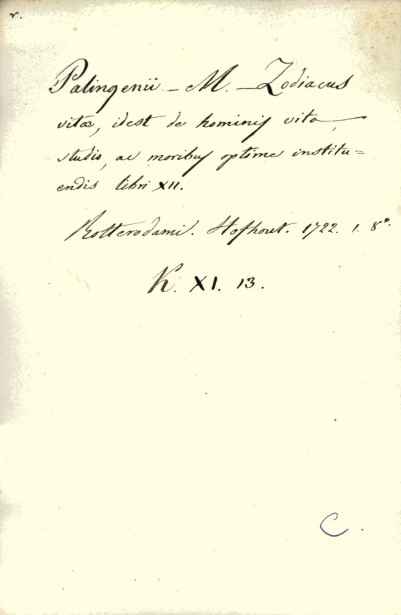 r.
Palingenii - M. - Zodiacus
vitæ, idest de hominis vita,
studio, ac moribus optime institu=
endis libri XII.
Rotterodami. Hofhout. 1722. 1. 8º.
K. XI. 13.
C.